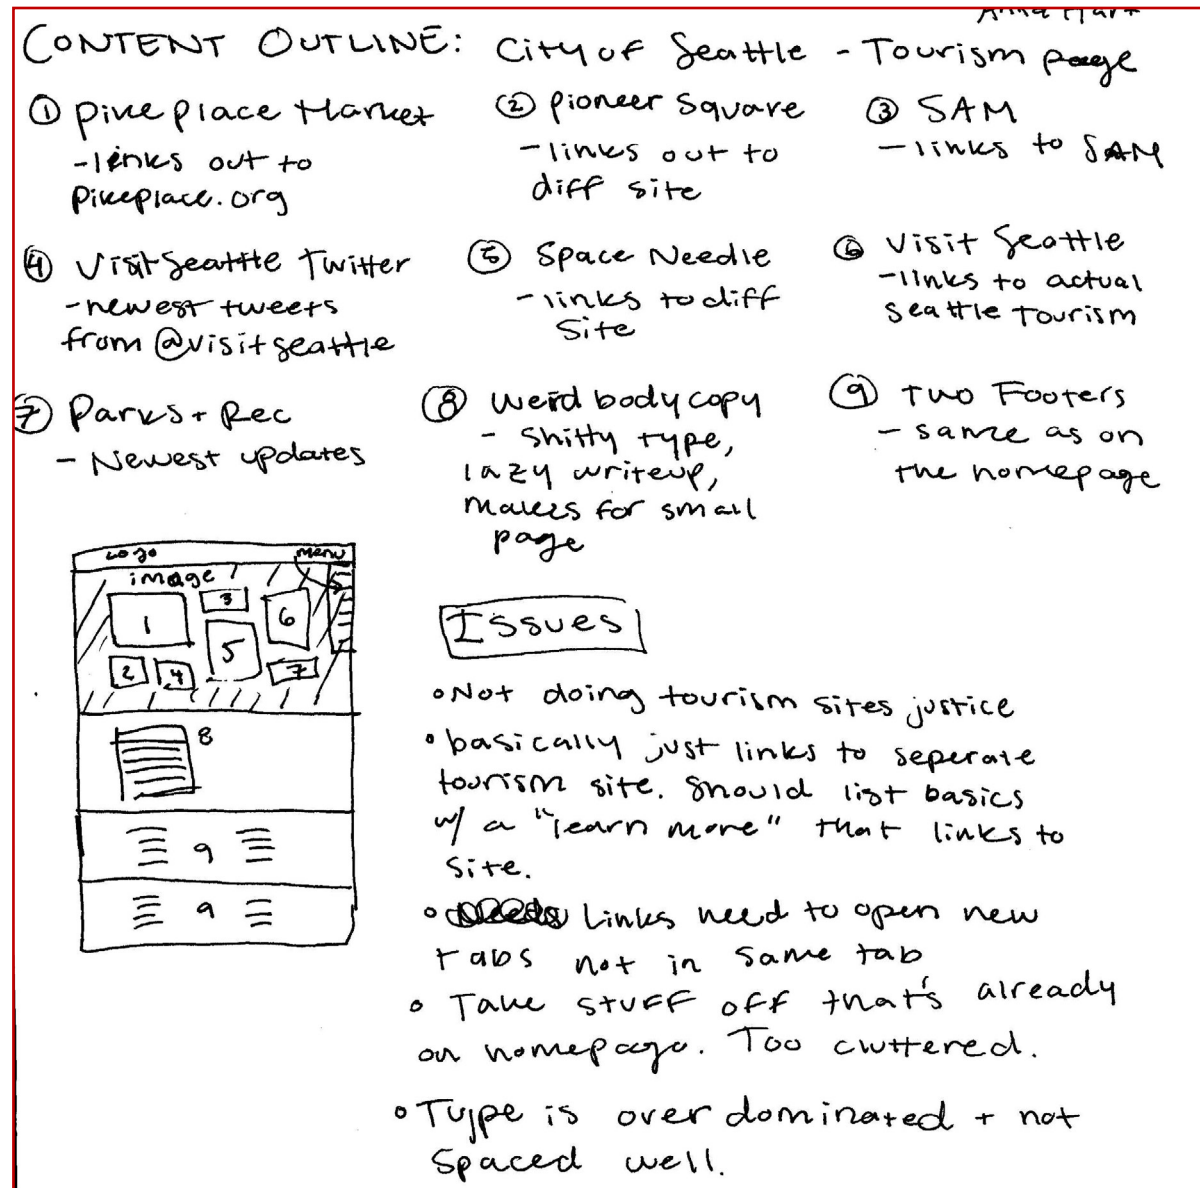 Anna Hart
CONTENT OUTLINE: City of Seattle - Tourism page
① Pike place Market
-links out to
pikeplace.org
② Pioneer Square
-links out to
diff site
③ SAM
-links to SAM
④ Visit Seattle Twitter
-newest tweets
from @visitseattle
⑤ Space Needle
-links to diff
site
⑥ Visit Seattle
-links to actual
seattle tourism
⑦ Parks + Rec
- Newest updates
⑧ weird body copy
- shitty type,
lazy writeup,
makes for small
page
⑨ Two Footers
- same as on
the homepage
Logo menu
image
1
3
6
2
4
5
7
8
9
9
Issues
• Not doing tourism sites justice
• basically just links to seperate
tourism site. Should list basics
w/ a "learn more" that links to
site.
• Links need to open new
tabs not in same tab
• Take stuff off that's already
on homepage. Too cluttered.
• Type is over dominated + not
spaced well.